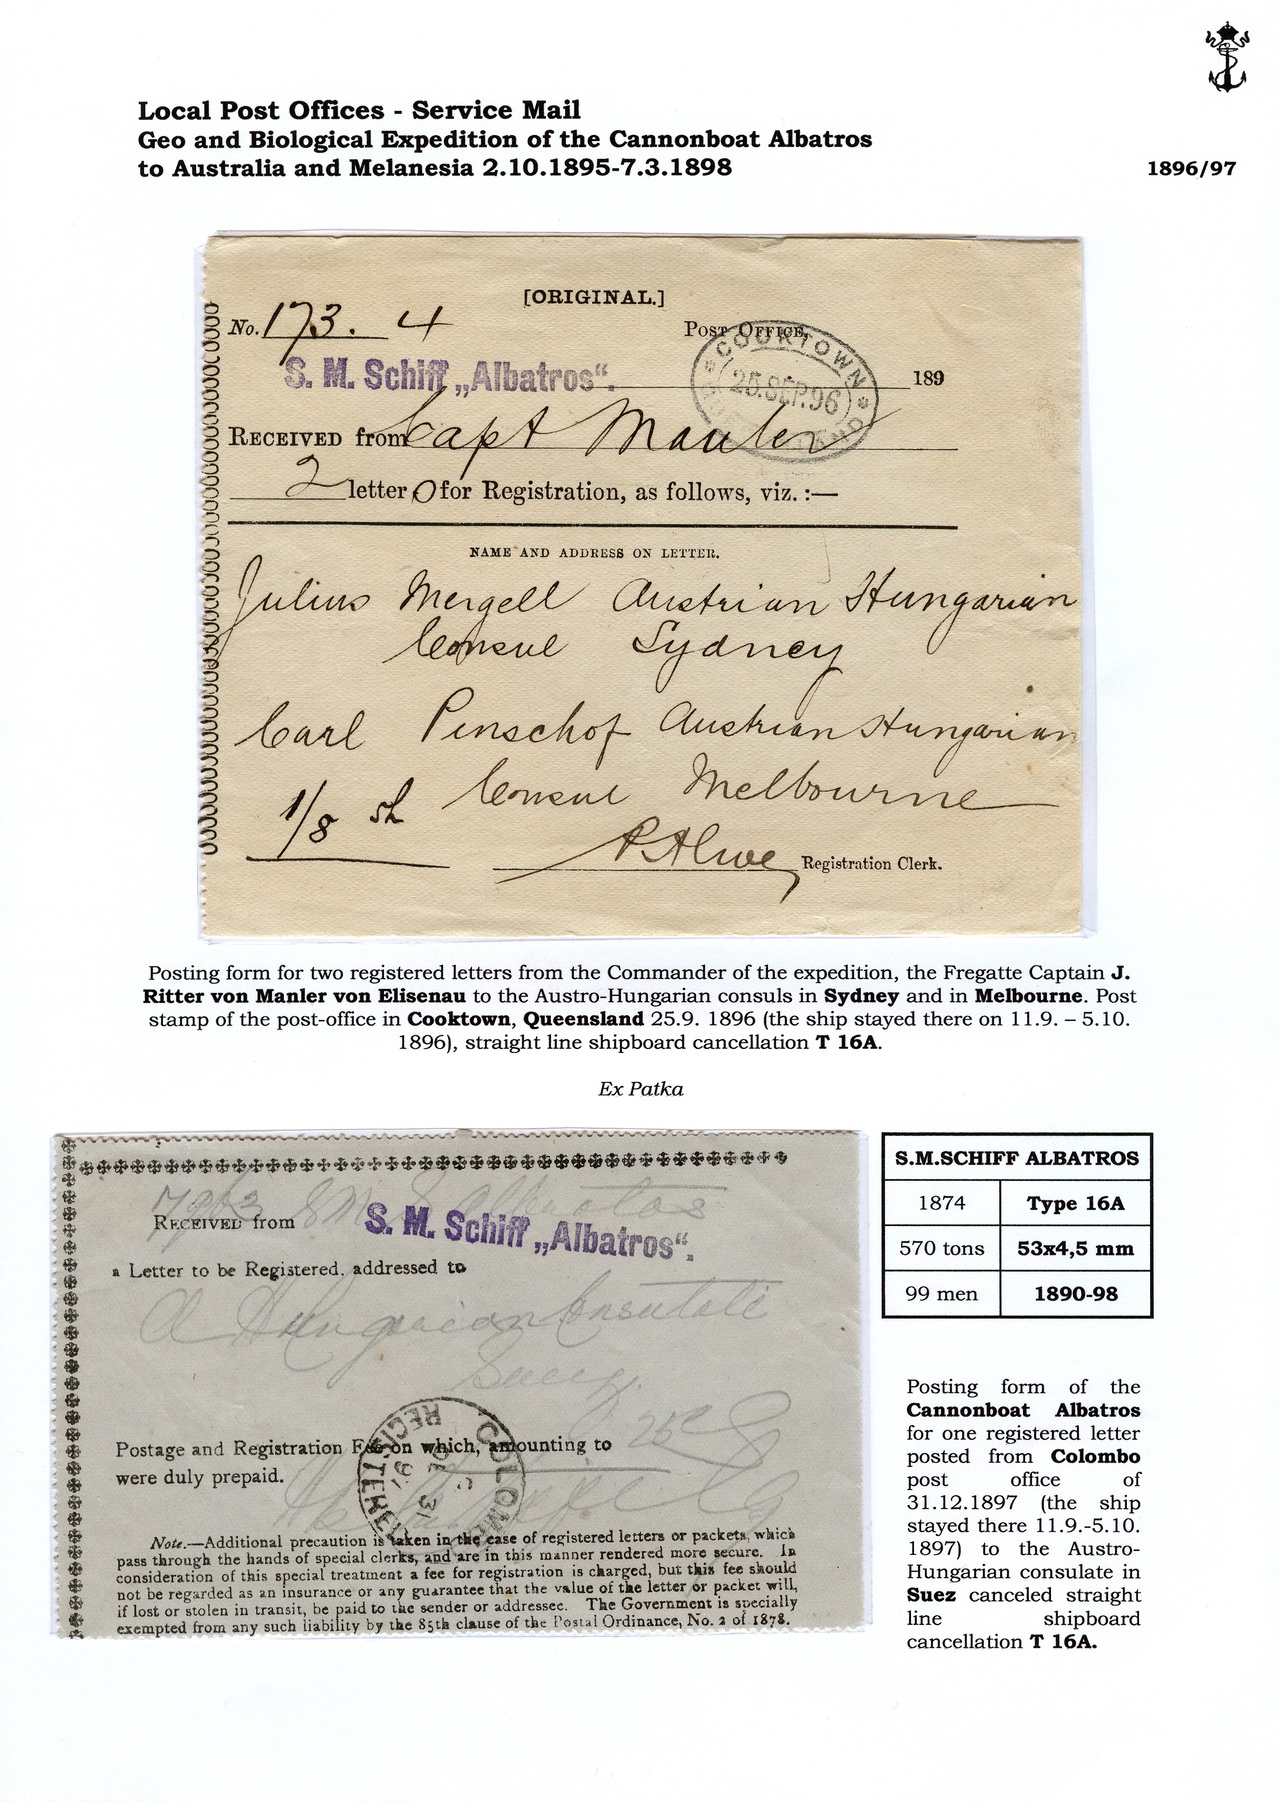 Local Post Offices - Service Mail
Geo and Biological Expedition of the Cannonboat Albatros
to Australia and Melanesia 2.10.1895-7.3.1898
1896/97
[ORIGINAL.]
No. 173. 4
POST OFFICE,
COOKTOWN
25.SEP.96
QUEENSLAND
S. M. Schiff „Albatros“.
189
RECEIVED from Capt Mauler
2 letter for Registration, as follows, viz. :—
NAME AND ADDRESS ON LETTER.
Julius Mergell Austrian Hungarian
Consul Sydney
Carl Pinschof Austrian Hungarian
Consul Melbourne
1/8
Registration Clerk.
Posting form for two registered letters from the Commander of the expedition, the Fregatte Captain J.
Ritter von Manler von Elisenau to the Austro-Hungarian consuls in Sydney and in Melbourne. Post
stamp of the post-office in Cooktown, Queensland 25.9. 1896 (the ship stayed there on 11.9. – 5.10.
1896), straight line shipboard cancellation T 16A.
Ex Patka
S.M.S Albatros
RECEIVED from
S. M. Schiff „Albatros“.
a Letter to be Registered, addressed to
A Hungarian Consulate
Suez
REGISTERED
COLOMBO
DE 31
97
Postage and Registration Fee on which, amounting to 25c
were duly prepaid.
Note.—Additional precaution is taken in the case of registered letters or packets, which
pass through the hands of special clerks, and are in this manner rendered more secure. In
consideration of this special treatment a fee for registration is charged, but this fee should
not be regarded as an insurance or any guarantee that the value of the letter or packet will,
if lost or stolen in transit, be paid to the sender or addressee. The Government is specially
exempted from any such liability by the 85th clause of the Postal Ordinance, No. 2 of 1878.
S.M.SCHIFF ALBATROS
1874 Type 16A
570 tons 53x4,5 mm
99 men 1890-98
Posting form of the
Cannonboat Albatros
for one registered letter
posted from Colombo
post office of
31.12.1897 (the ship
stayed there 11.9.-5.10.
1897) to the Austro-
Hungarian consulate in
Suez canceled straight
line shipboard
cancellation T 16A.